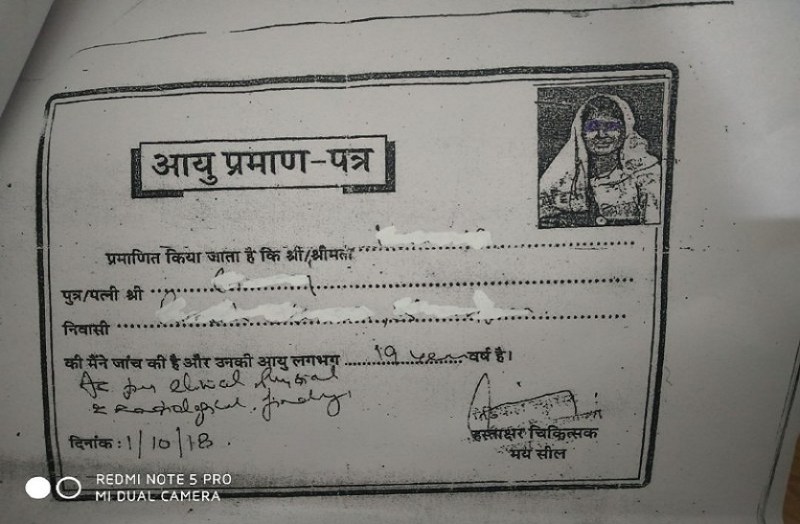 आयु प्रमाण-पत्र
प्रमाणित किया जाता है कि श्री/श्रीमती
पुत्र/पत्नी श्री
निवासी
की मैंने जांच की है और उनकी आयु लगभग 19 year वर्ष है।
As per clinical Physical
& Radiological finding
दिनांक : 1/10/18.
हस्ताक्षर चिकित्सक
मय सील
REDMI NOTE 5 PRO
MI DUAL CAMERA